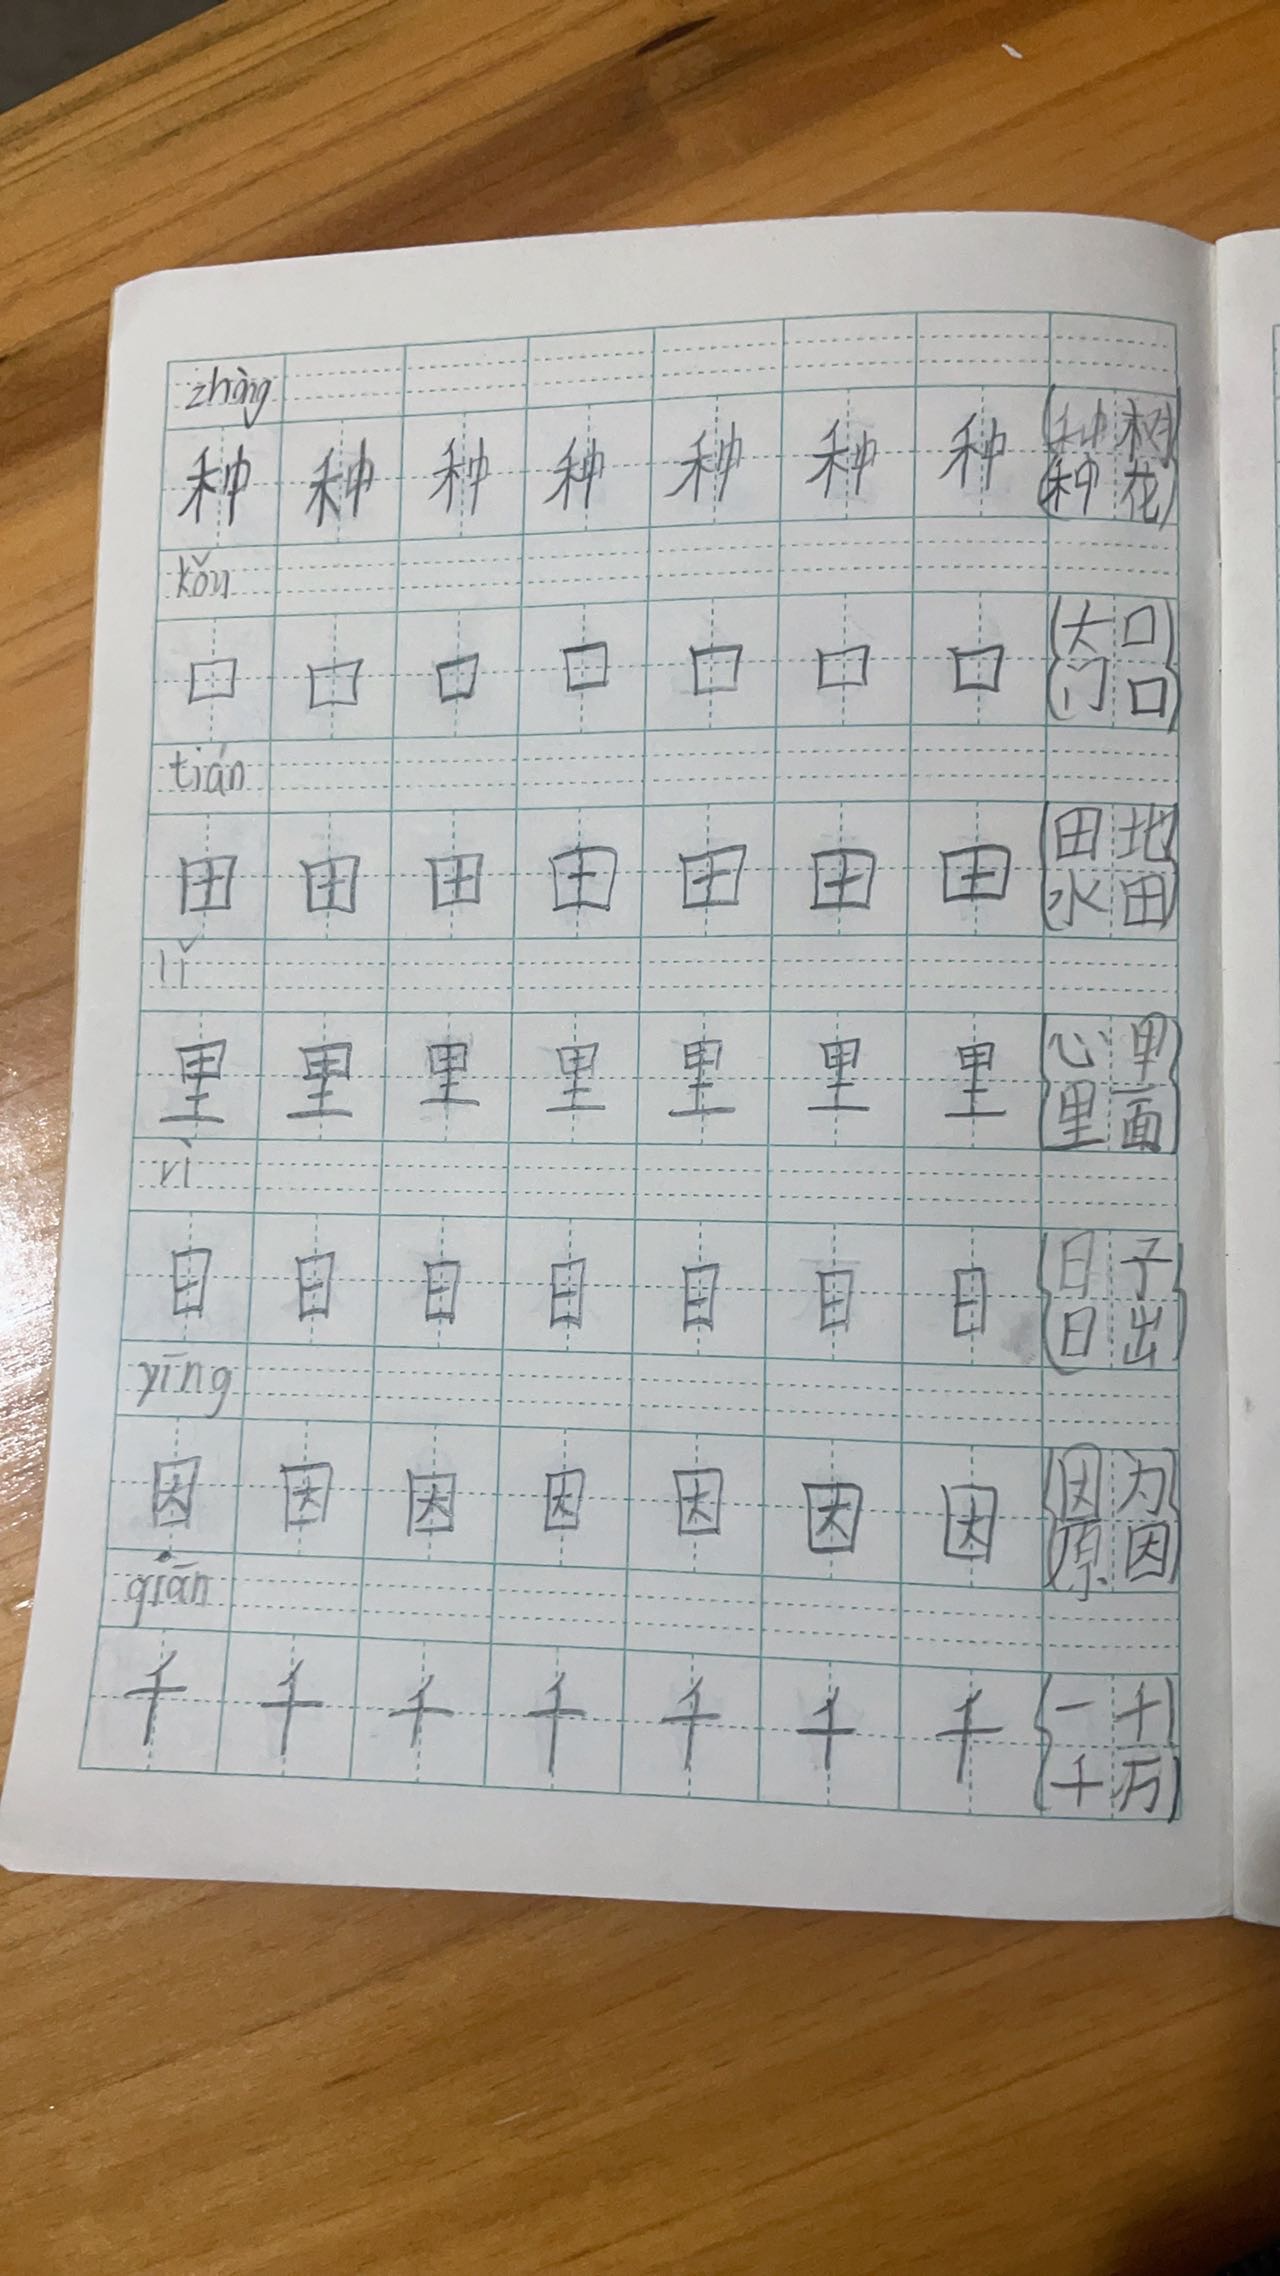 zhòng
种 种 种 种 种 种 种 (种树
种花)
kǒu
口 口 口 口 口 口 口 (大口
门口)
tián
田 田 田 田 田 田 田 (田地
水田)
lǐ
里 里 里 里 里 里 里 (心里
里面)
rì
日 日 日 日 日 日 日 (日子
日出)
yīng
因 因 因 因 因 因 因 (因为
原因)
qiān
千 千 千 千 千 千 千 (一千
千万)